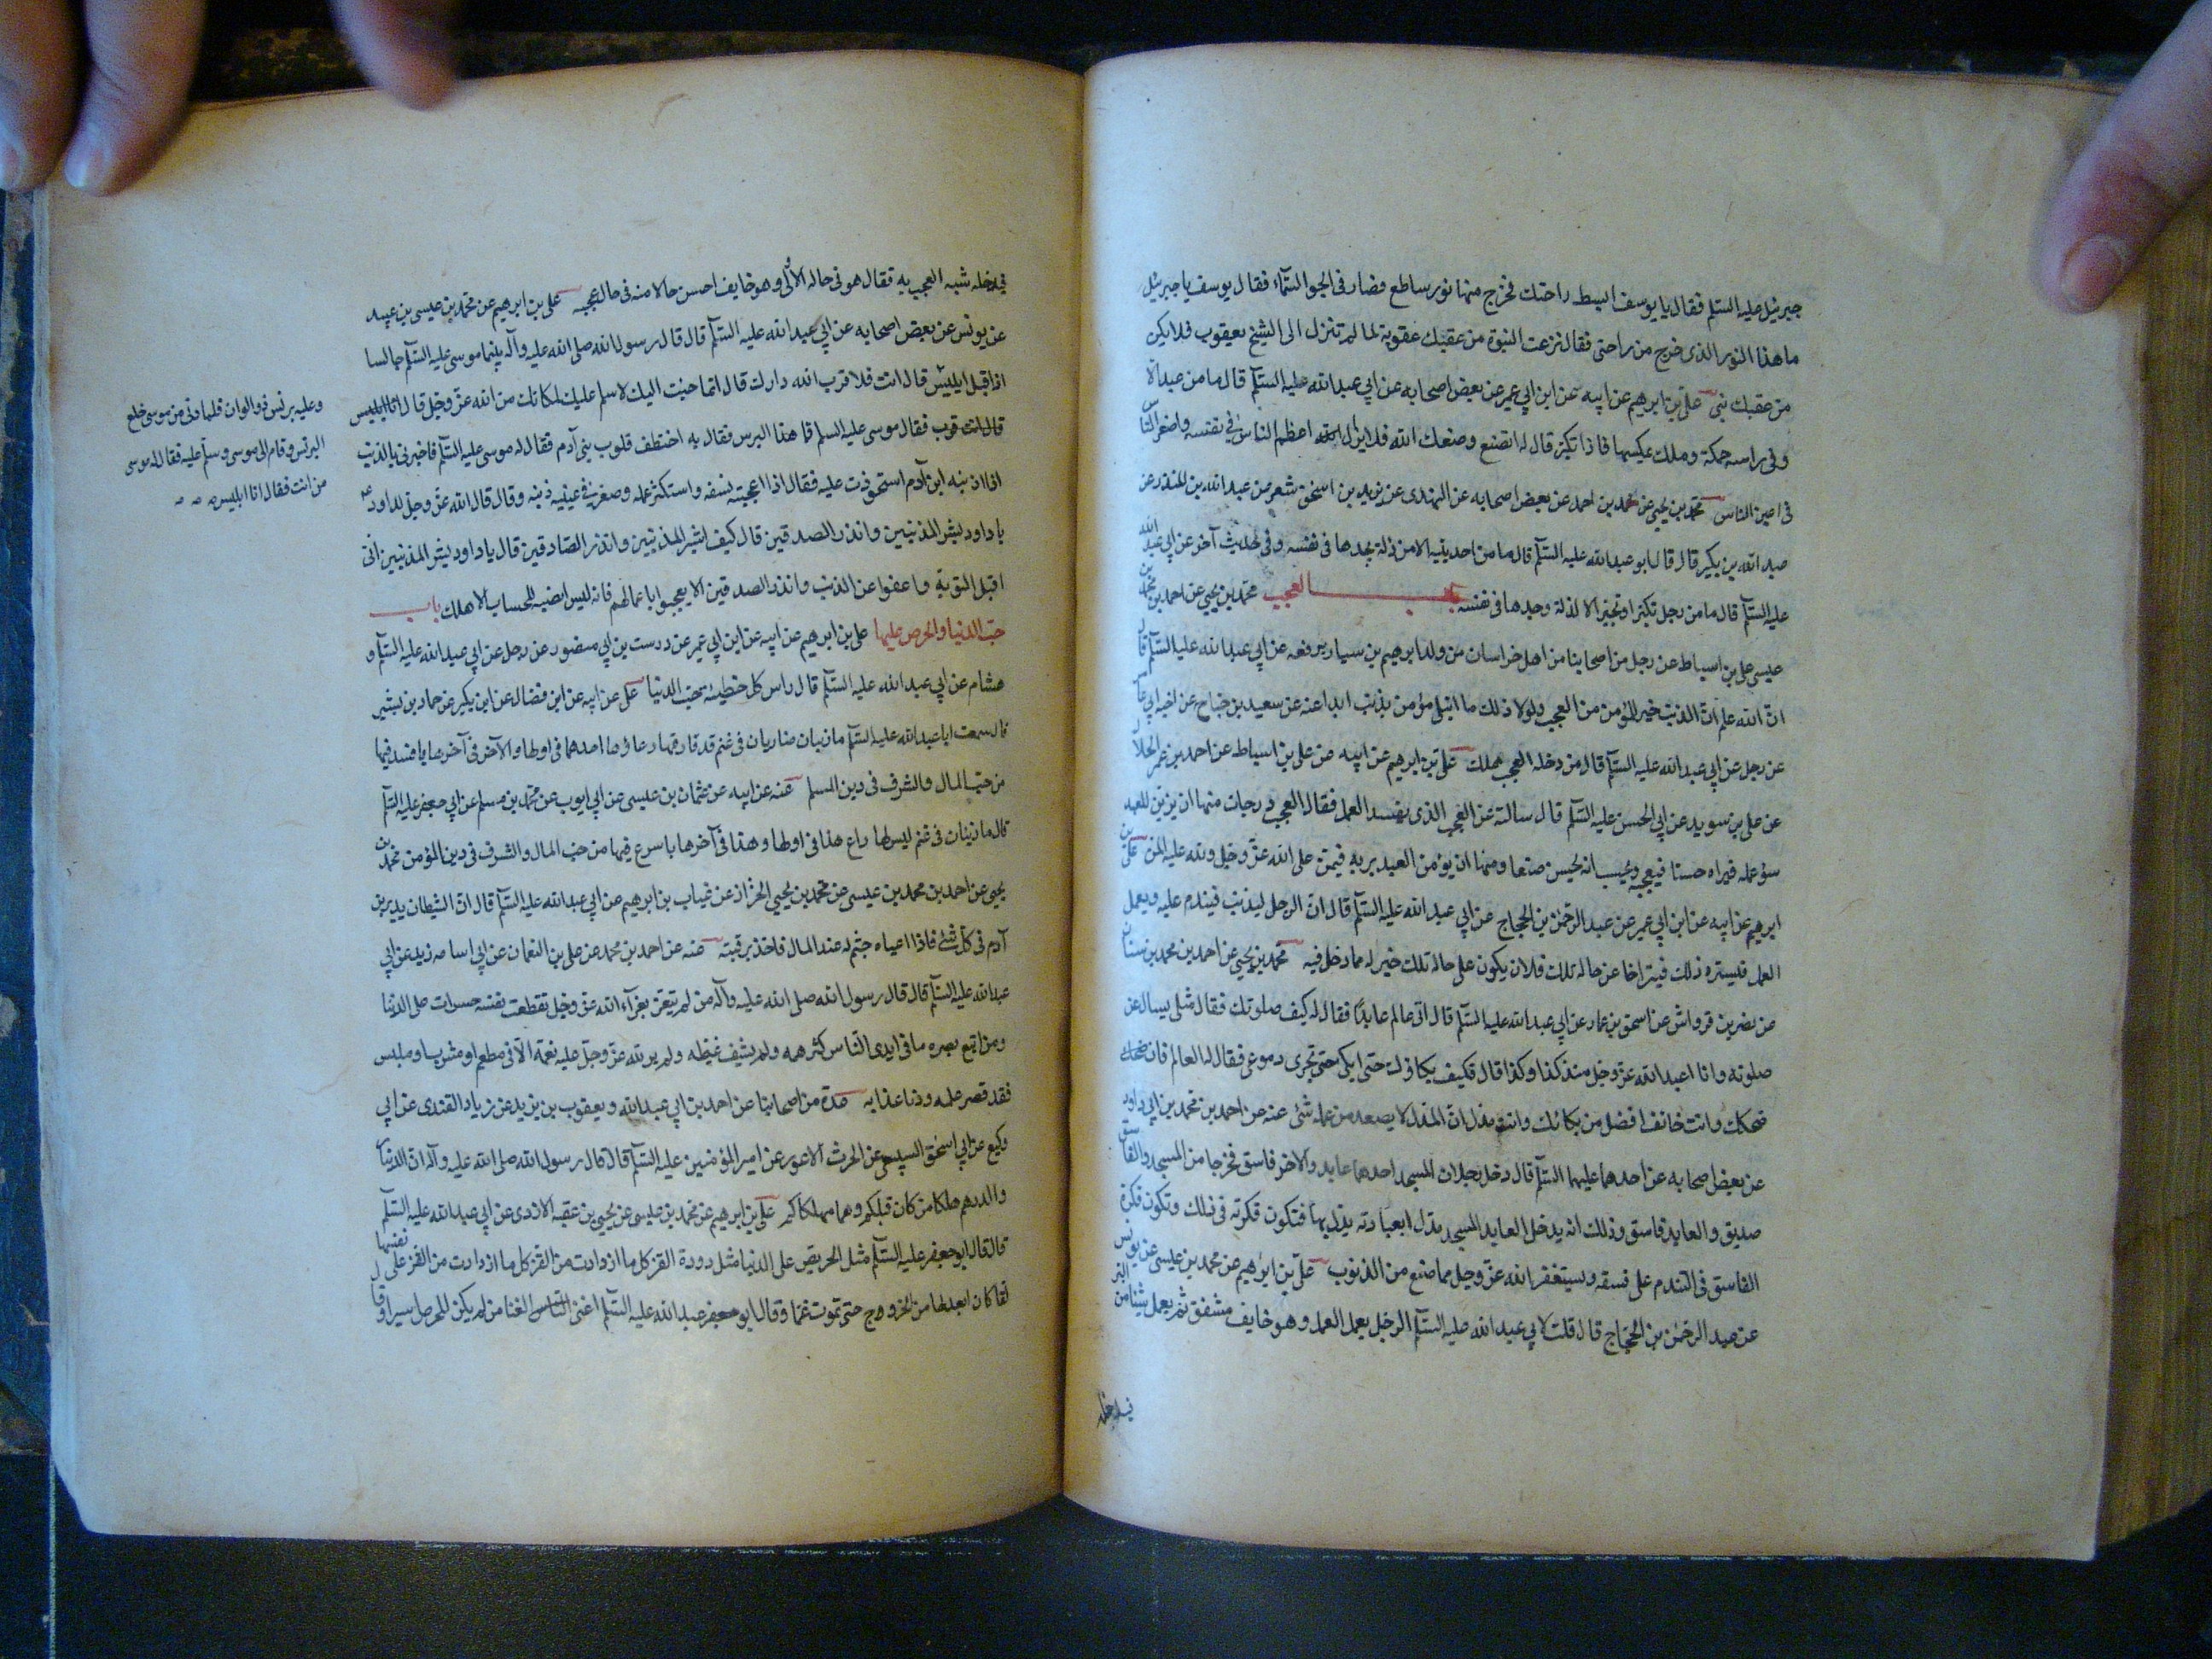 جبرئيل عليه السلم فقال يا يوسف ابسط راحتك فخرج منها نور ساطع فصار فى الجو السمآء فقال يوسف يا جبرئيل
ما هذا النور الذى خرج من راحتى فقال نزعت النبوة من عقبك عقوبة لما لم تنزل الى الشيخ يعقوب فلا يكون
من عقبك نبى على بن ابرهيم عن ابيه عن ابن ابي عمير عن بعض اصحابه عن ابي عبد الله عليه السلم قال ما من عبد الا
وفى راسه حكمة وملك يمسكها فاذا تكبر قال له اتضع وضعك الله فلا يزال اعظم الناس فى نفسه واصغر الناس
فى اعين الناس محمد بن يحيى عن محمد بن احمد عن بعض اصحابه عن النهدى عن يزيد بن اسحق شعر عن عبد الله بن المنذر عن
عبد الله بن بكير قال قال ابو عبد الله عليه السلم قال ما من احد يتيه الا من ذلة يجدها فى نفسه وفى حديث آخر عن ابي عبد الله
عليه السلم قال ما من رجل تكبر او تجبر الا لذلة وجدها فى نفسه باب العجب محمد بن يحيى عن احمد بن محمد بن
عيسى على بن اسباط عن رجل من اصحابنا من اهل خراسان من ولد ابرهيم بن سيار يرفعه عن ابي عبد الله عليه السلم قال
ان الله علم ان الذنب خير للمؤمن من العجب ولولا ذلك ما ابتلى مؤمن بذنب ابدا عنه عن سعيد بن جناح عن اخيه ابي عامر
عن رجل عن ابي عبد الله عليه السلم قال من دخله العجب هلك على بن ابرهيم عن ابيه عن على بن اسباط عن احمد بن عمر الحلال
عن على بن سويد عن ابي الحسن عليه السلم قال سالته عن العجب الذى يفسد العمل فقال العجب درجات منها ان يزين للعبد
سؤ عمله فيراه حسنا فيعجبه ويحسب انه يحسن صنعا ومنها ان يؤمن العبد بربه فيمن على الله عز وجل ولله عليه المن على بن
ابرهيم عن ابيه عن ابن ابي عمير عن عبد الرحمن بن الحجاج عن ابي عبد الله عليه السلم قال ان الرجل ليذنب فيندم عليه ويعمل
العمل فيسره ذلك فيتراخا عن حاله تلك فلان يكون على حاله تلك خير له مما دخل فيه محمد بن يحيى عن احمد بن محمد بن سنان
عن نضر بن قرواش عن اسحق بن عمار عن ابي عبد الله عليه السلم قال اتى عالم عابدا فقال له كيف صلوتك فقال مثلى يسال عن
صلوته وانا اعبد الله عز وجل منذ كذا وكذا قال فكيف بكاؤك حتى ابكى حتى تجرى دموعى فقال له العالم فان ضحكك
ضحكك وانت خائف افضل من بكائك وانت مدل ان المدل لا يصعد من عمله شئ عنه عن احمد بن محمد بن ابي داود
عن بعض اصحابه عن احدهما عليهما السلم قال دخل رجلان المسجد احدهما عابد والاخر فاسق فخرجا من المسجد والفاسق
صديق والعابد فاسق وذلك انه يدخل العابد المسجد مدلا بعبادته يدل بها فتكون فكرته فى ذلك وتكون فكرة
الفاسق فى التندم على فسقه ويستغفر الله عز وجل مما صنع من الذنوب على بن ابرهيم عن محمد بن عيسى عن يونس
عن عبد الرحمن بن الحجاج قال قلت لابي عبد الله عليه السلم الرجل يعمل العمل وهو خايف مشفق ثم يعمل شيئا من البر
فيدخله
فيدخله شبه العجب به فقال هو فى حاله الاولى وهو خايف احسن حالا منه فى حال عجبه على بن ابرهيم عن محمد بن عيسى بن عبيد
عن يونس عن بعض اصحابه عن ابي عبد الله عليه السلم قال قال رسول الله صلى الله عليه وآله بينما موسى عليه السلم جالسا
اذ اقبل ابليس قال انت فلا قرب الله دارك قال انما جئت اليك لاسلم عليك لمكانك من الله عز وجل قال انا ابليس
قال انت فوب فقال موسى عليه السلم فما هذا البرنس فقال به اختطف قلوب بنى آدم فقال له موسى عليه السلم فاخبرنى بالذنب
الذى اذا اذنبه ابن آدم استحوذت عليه فقال اذا اعجبته نفسه واستكثر عمله وصغر فى عينيه ذنبه وقال قال الله عز وجل لداود ع
يا داود بشر المذنبين وانذر الصديقين قال كيف ابشر المذنبين وانذر الصادقين قال يا داود بشر المذنبين انى
اقبل التوبة واعفوا عن الذنب وانذر الصديقين الا يعجبوا باعمالهم فانه ليس انصبه للحساب الا هلك باب
حب الدنيا والحرص عليها على بن ابرهيم عن ابيه عن ابن ابي عمير عن درست بن ابي منصور عن رجل عن ابي عبد الله عليه السلم و
هشام عن ابي عبد الله عليه السلم قال راس كل خطيئة حب الدنيا على عن ابيه عن ابن فضال عن ابن بكير عن حماد بن بشير
قال سمعت ابا عبد الله عليه السلم ما ذيبان ضاريان فى غنم قد فارقها رعاؤها احدهما فى اولها والآخر فى آخرها بافسد فيها
من حب المال والشرف فى دين المسلم عنه عن ابيه عن عثمان بن عيسى عن ابي ايوب عن محمد بن مسلم عن ابي جعفر عليه السلم
قال ما ذئبان فى غنم ليس لها راع هذا فى اولها وهذا فى آخرها باسرع فيها من حب المال والشرف فى دين المؤمن محمد بن
يحيى عن احمد بن محمد بن عيسى عن محمد بن يحيى الخزاز عن غياث بن ابرهيم عن ابي عبد الله عليه السلم قال ان الشيطان يدير بن
آدم فى كل شئ فاذا اعياه جثم له عند المال فاخذ برقبته عنه عن احمد بن محمد عن على بن النعمان عن ابي اسامه زيد عن ابي
عبد الله عليه السلم قال قال رسول الله صلى الله عليه وآله من لم يتعز بعزآء الله عز وجل تقطعت نفسه حسرات على الدنيا
ومن اتبع بصره ما فى ايدى الناس كثر همه ولم يشف غيظه ولم ير لله عز وجل عليه نعمة الا فى مطعم او مشرب او ملبس
فقد قصر عمله ودنا عذابه عدة من اصحابنا عن احمد بن ابي عبد الله ويعقوب بن يزيد عن زياد القندى عن ابي
وكيع عن ابي اسحق السبيعى عن الحرث الاعور عن امير المؤمنين عليه السلم قال قال رسول الله صلى الله عليه وآله ان الدينار
والدرهم هلكا من كان قبلكم وهما مهلكاكم على بن ابرهيم عن محمد بن عيسى عن يحيى بن عقبه الازدى عن ابي عبد الله عليه السلم
قال قال ابو جعفر عليه السلم مثل الحريص على الدنيا مثل دودة القز كل ما ازدادت من القز كل ما ازدادت من القز على نفسها
لفا كان ابعد لها من الخروج حتى تموت غما وقال ابو جعفر عبد الله عليه السلم اغنى الناس الغنا من لم يكن للحرص اسيرا وقال
وعليه برنس ذو الوان فلما دنى من موسى خلع
البرنس وقام الى موسى وسلم عليه فقال له موسى
من انت فقال انا ابليس